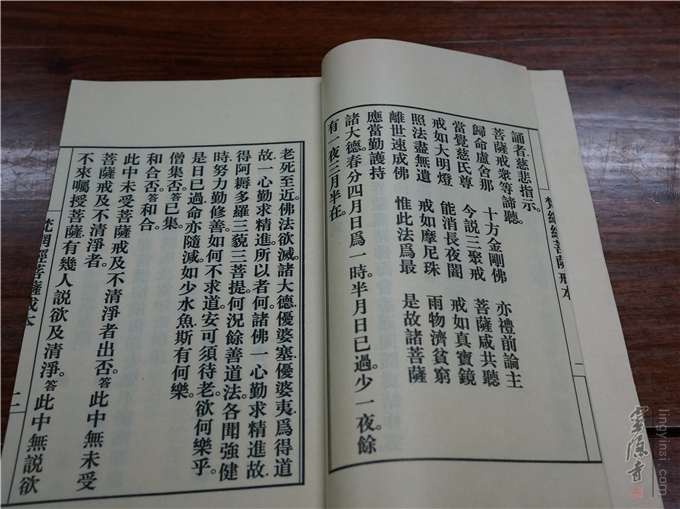 誦者慈悲指示。
菩薩戒衆等諦聽。
歸命盧舍那　十方金剛佛　亦禮前論主
當覺慈氏尊　今說三聚戒　菩薩咸共聽
戒如大明燈　能消長夜闇　戒如真寶鏡
照法盡無遺　戒如摩尼珠　雨物濟貧窮
離世速成佛　惟此法爲最　是故諸菩薩
應當勤護持
諸大德。春分四月日爲一時。半月日已過。少一夜。餘
有一夜三月半在。
梵網經菩薩戒本
二
老死至近。佛法欲滅。諸大德。優婆塞。優婆夷。爲得道
故。一心勤求精進。所以者何。諸佛一心勤求精進故。
得阿耨多羅三藐三菩提。何況餘善道法。各聞強健
時。努力勤修善。如何不求道。安可須待老。欲何樂乎。
是日已過。命亦隨減。如少水魚。斯有何樂。
僧集否。答已集。
和合否。答和合。
此中未受菩薩戒及不清淨者出否。答此中無未受
菩薩戒及不清淨者。
不來囑授菩薩有幾人說欲及清淨。答此中無說欲
梵網經菩薩戒本
靈隱寺
lingyinsi.com